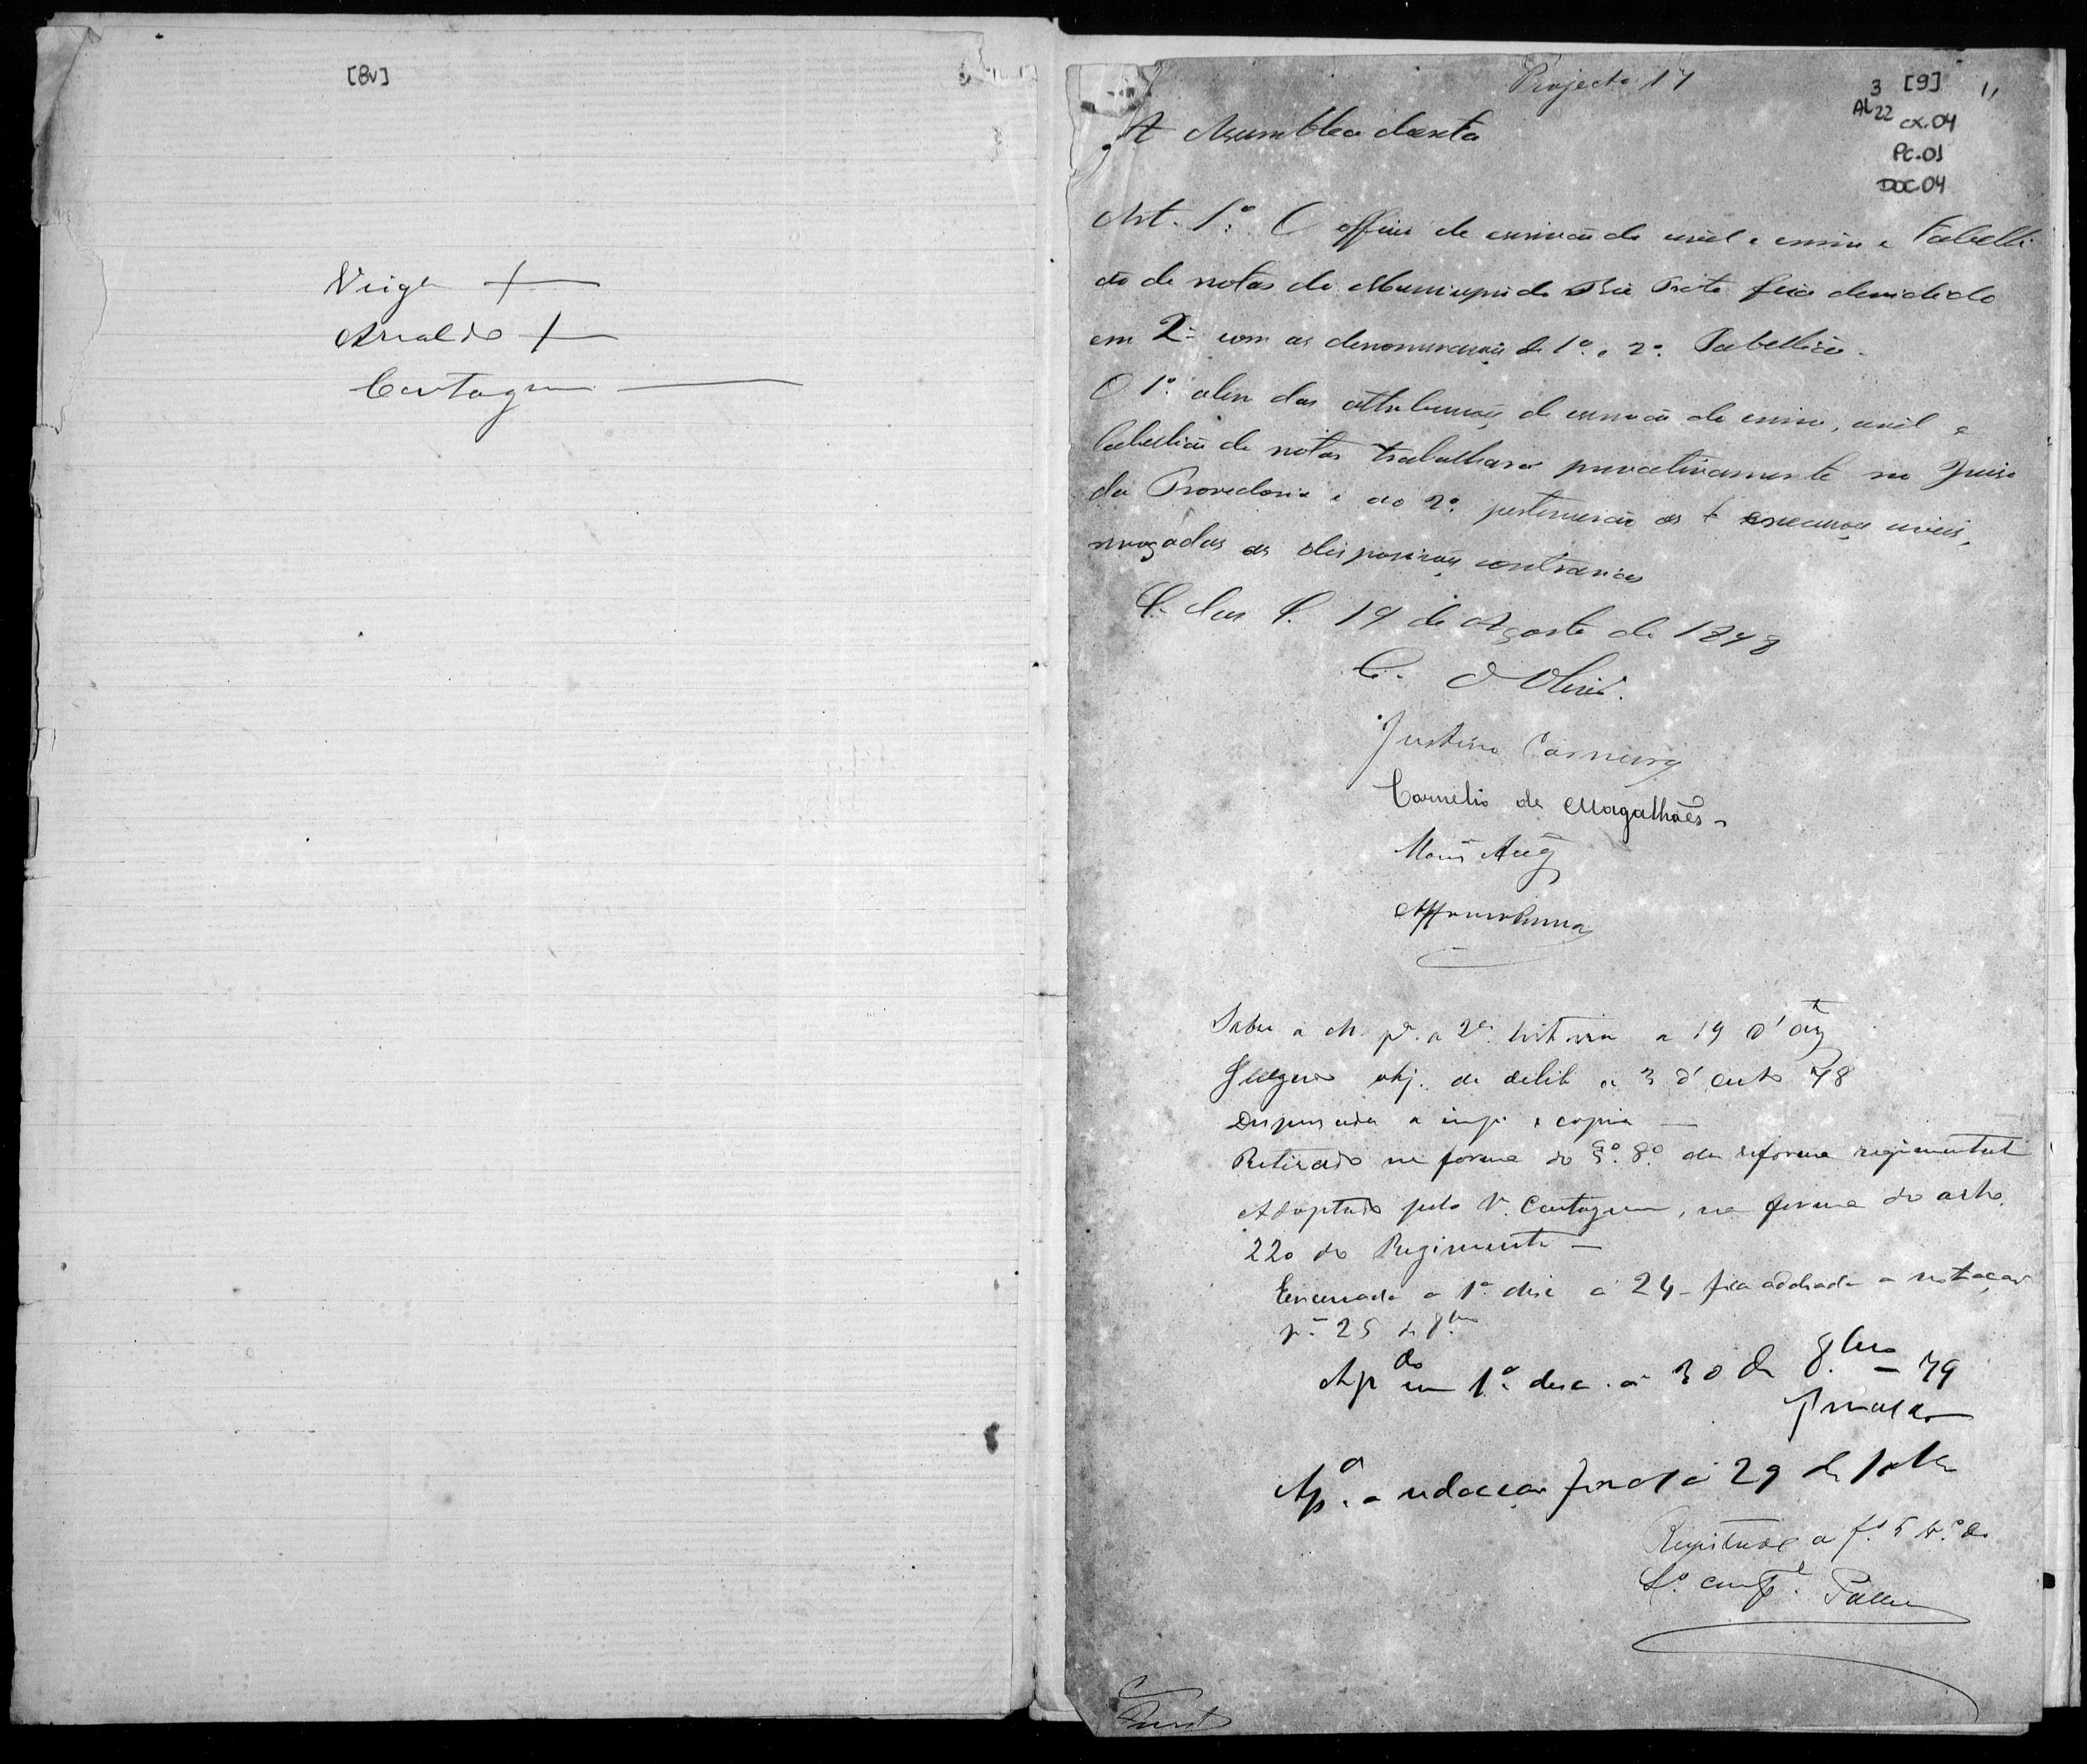 [8v]
Veiga
Arnaldo
Contagem
Projecto 17
3 [9] 11
AL22 cx.04
Pc.01
DOC.04
A Assemblea decreta
Art. 1.º O officio de escrivão do civel e crime e Tabelli
ão de notas do Municipio do Rio Preto fica devidido
em 2 com as denominações de 1º e 2º Tabellião.
O 1º alem das attribuições de escrivão do crime, civel e
tabellião de notas trabalhara privativamente no Juiso
da Provedoria e ao 2º pertencerão as execuções civeis,
revogadas as disposições contrarias
S. das S. 19 de Agosto de 1878
C. d'Oliv.ª
Justino Carneiro
Cornelio de Magalhães
Affonso Penna
a 19 d'Ag
Julgado obj. de delib a 3 d' 78
Dispensada a imp. e copia
Retirado na forma do § 8º da reforma regimental
Adoptado pelo Contagem, na forma do artº
220 do Regimento
Encerrada a 1ª disc a 24 fica addiada a votação
pª 25 de 8bro
Ap.do em 1ª disc. a 30 de 8.bro 79
Arnaldo
Ap.ª a redacção final a 29 de
a f.
L.º comp.e